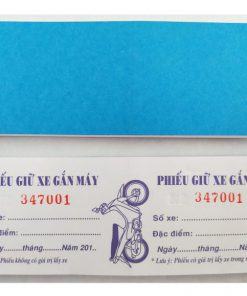 HIẾU GIỮ XE GẮN MÁY
347001
xe:...............................
điểm:..........................
......tháng.......Năm 201..
Phiếu không có giá trị lấy xe
PHIẾU GIỮ XE GẮN
347001
Số xe:...........................
Đặc điểm:......................
Ngày.......tháng.......Năm
* Lưu ý : Phiếu không có giá trị lấy xe trong